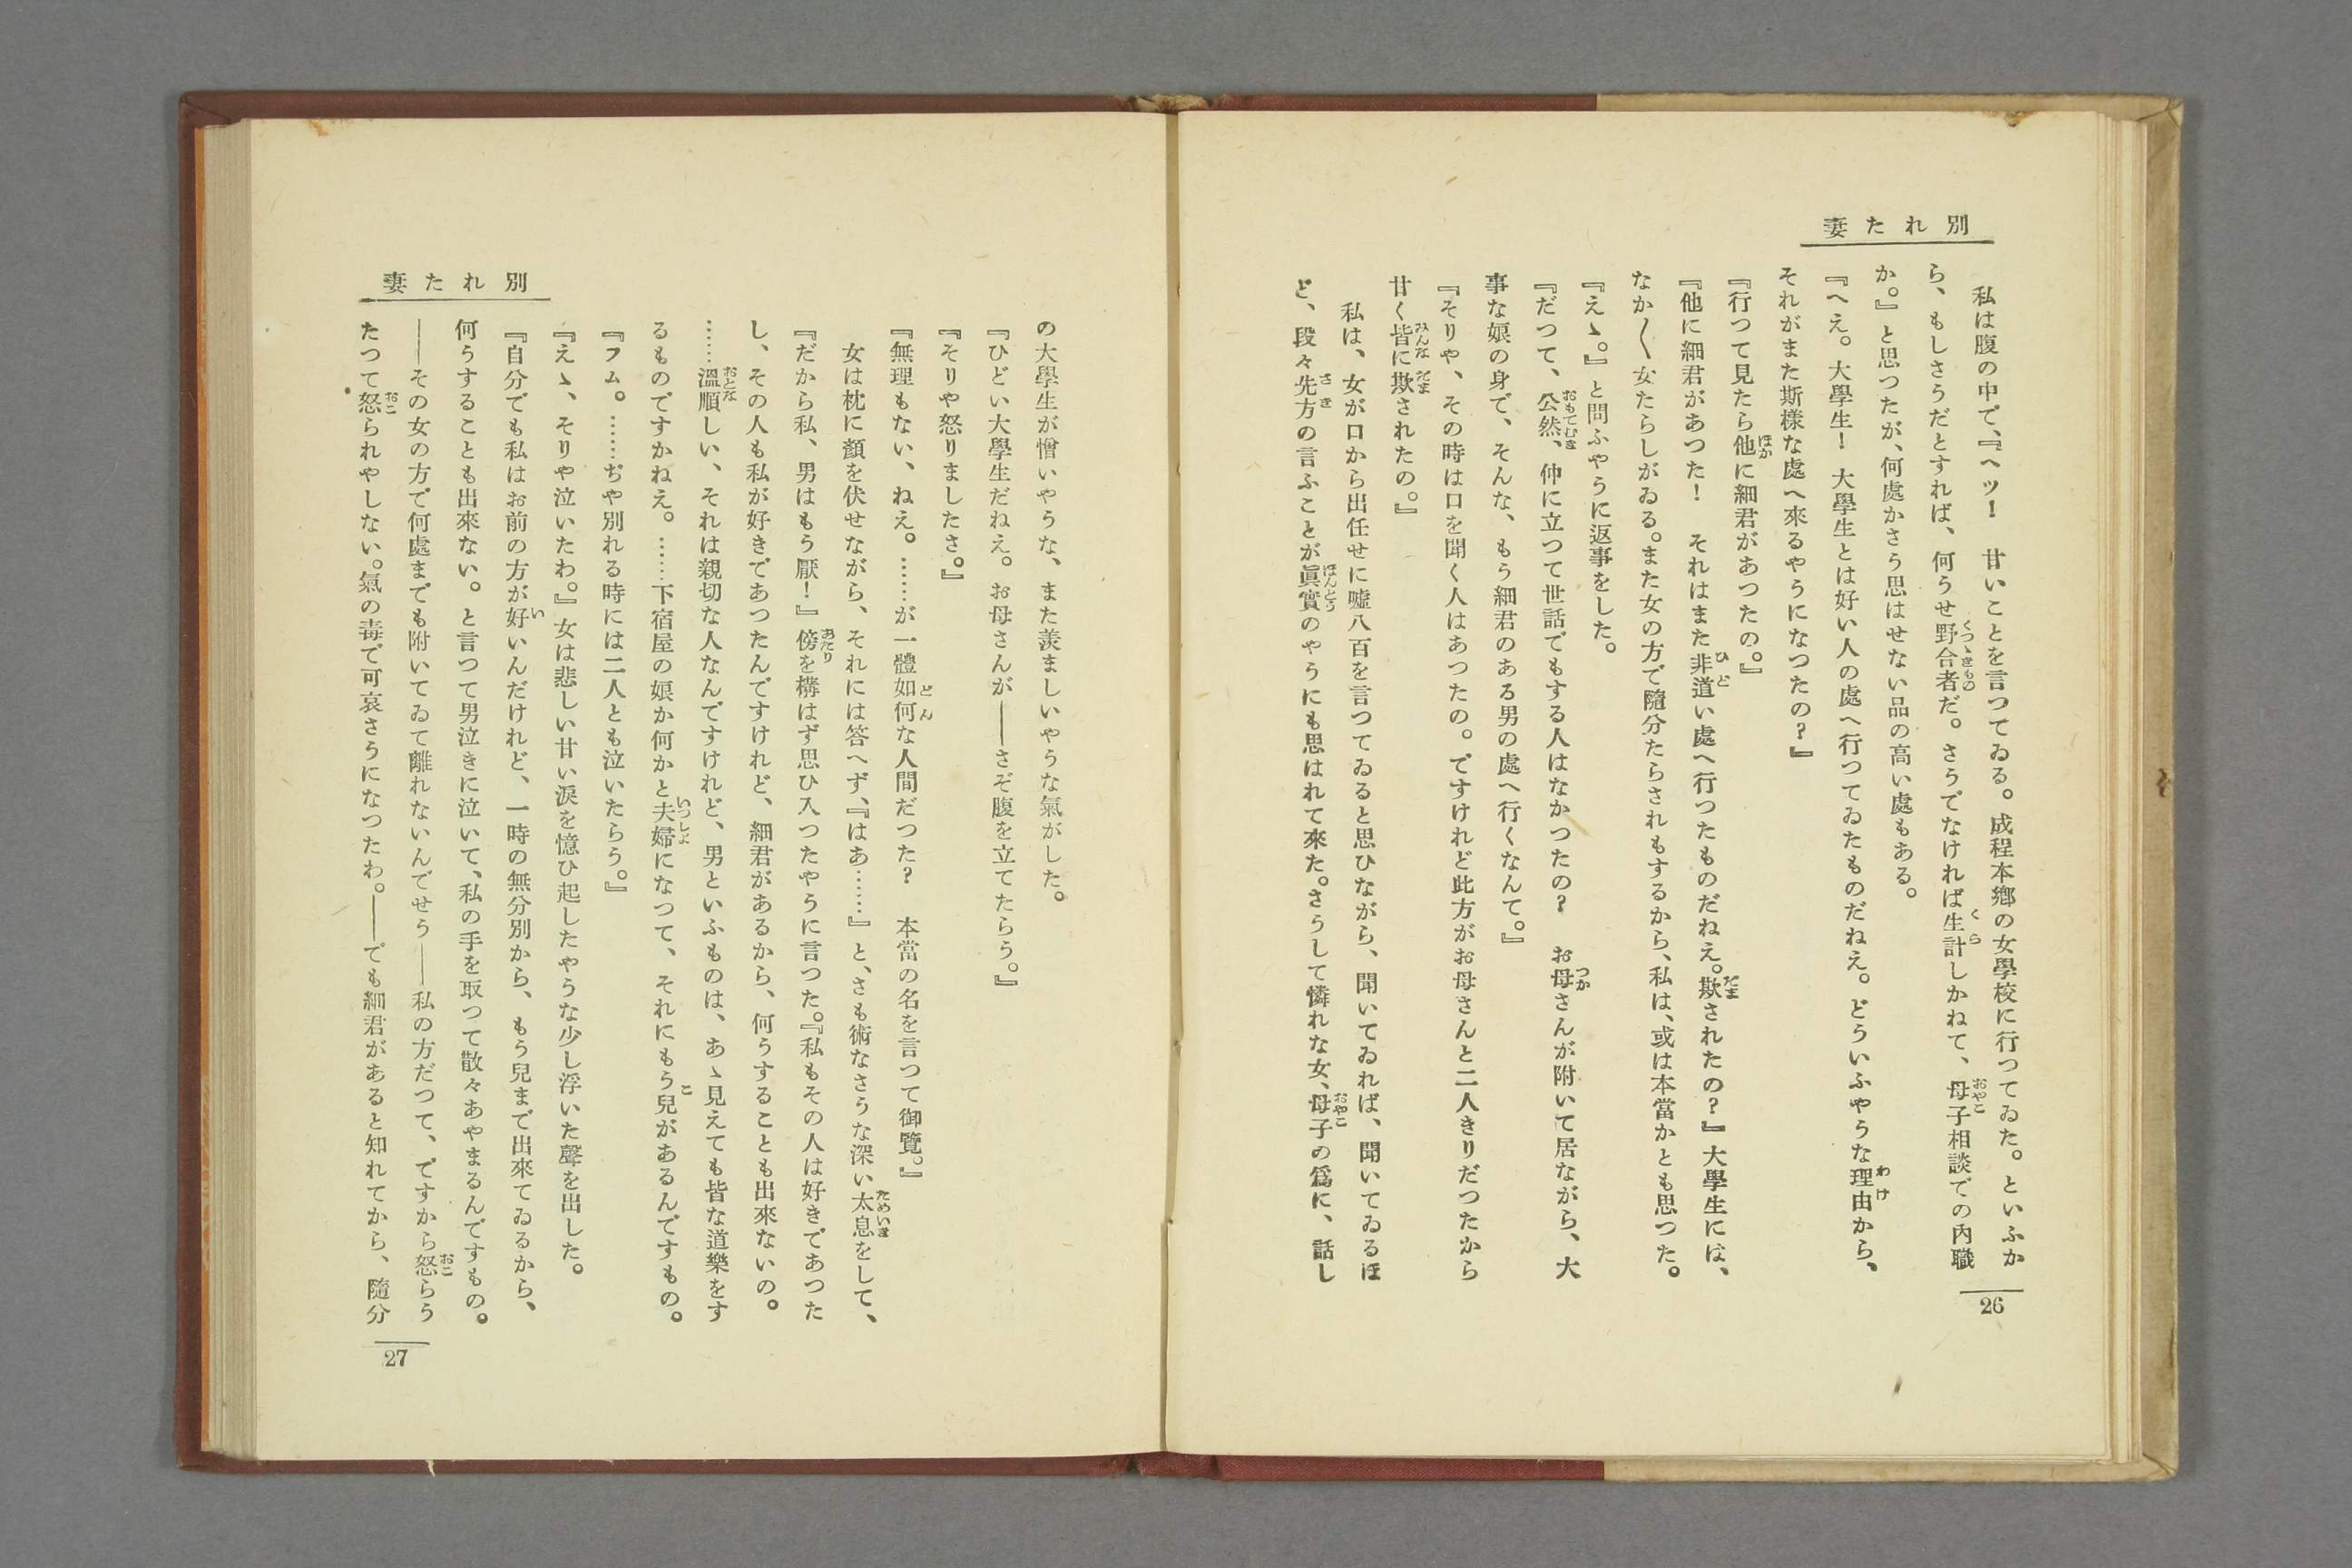 別れた妻
私は腹の中で、『ヘツ！　甘いことを言つてゐる。成程本鄕の女學校に行つてゐた。といふか
ら、もしさうだとすれば、何うせ野合者だ。さうでなければ生計しかねて、母子相談での內職
か。』と思つたが、何處かさう思はせない品の高い處もある。
『へえ。大學生！　大學生とは好い人の處へ行つてゐたものだねえ。どういふやうな理由から、
それがまた斯樣な處へ來るやうになつたの？』
『行つて見たら他に細君があつたの。』
『他に細君があつた！　それはまた非道い處へ行つたものだねえ。欺されたの？』大學生には、
なか〱女たらしがゐる。また女の方で隨分たらされもするから、私は、或は本當かとも思つた。
『えゝ。』と問ふやうに返事をした。
『だつて、公然、仲に立つて世話でもする人はなかつたの？　お母さんが附いて居ながら、大
事な娘の身で、そんな、もう細君のある男の處へ行くなんて。』
『そりや、その時は口を聞く人はあつたの。ですけれど此方がお母さんと二人きりだつたから
甘く皆に欺されたの。』
私は、女が口から出任せに噓八百を言つてゐると思ひながら、聞いてゐれば、聞いてゐるほ
ど、段々先方の言ふことが眞實のやうにも思はれて來た。さうして憐れな女、母子の爲に、話し
26
別れた妻
の大學生が憎いやうな、また羨ましいやうな氣がした。
『ひどい大學生だねえ。お母さんが――さぞ腹を立てたらう。』
『そりや怒りましたさ。』
『無理もない、ねえ。……が一體如何な人間だつた？　本當の名を言つて御覽。』
女は枕に顏を伏せながら、それには答へず、『はあ……』と、さも術なさうな深い太息をして、
『だから私、男はもう厭！』傍を構はず思ひ入つたやうに言つた。『私もその人は好きであつた
し、その人も私が好きであつたんですけれど、細君があるから、何うすることも出來ないの。
……溫順しい、それは親切な人なんですけれど、男といふものは、あゝ見えても皆な道樂をす
るものですかねえ。……下宿屋の娘か何かと夫婦になつて、それにもう兒があるんですもの。
『フム。……ぢや別れる時には二人とも泣いたらう。』
『えゝ、そりや泣いたわ。』女は悲しい甘い淚を憶ひ起したやうな少し浮いた聲を出した。
『自分でも私はお前の方が好いんだけれど、一時の無分別から、もう兒まで出來てゐるから、
何うすることも出來ない。と言つて男泣きに泣いて、私の手を取つて散々あやまるんですもの。
――その女の方で何處までも附いてゐて離れないんでせう――私の方だつて、ですから怒らう
たつて怒られやしない。氣の毒で可哀さうになつたわ。――でも細君があると知れてから、隨分
27